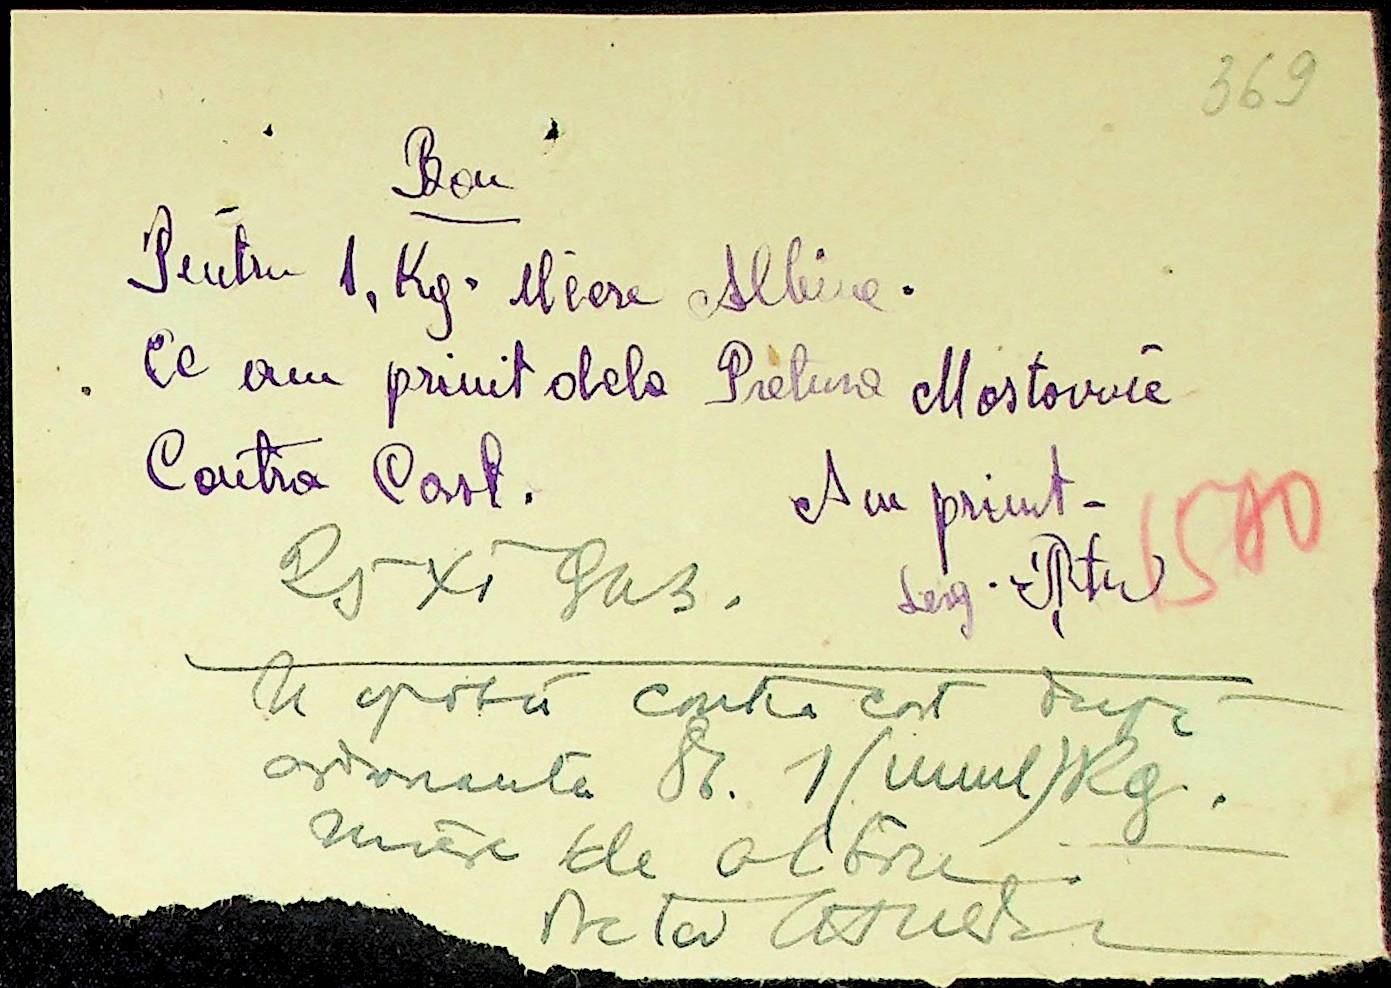 369
Bon
Pentru 1, Kg. Miere Albine.
Ce am primit dela Pretura Mostovoie
Contra Cost. Am primit-
Serg.
25 XI 943.
1500
Se aprobă contra cost după
ordonanta 1 (unul) Kg.
miere de albine.
Pretor